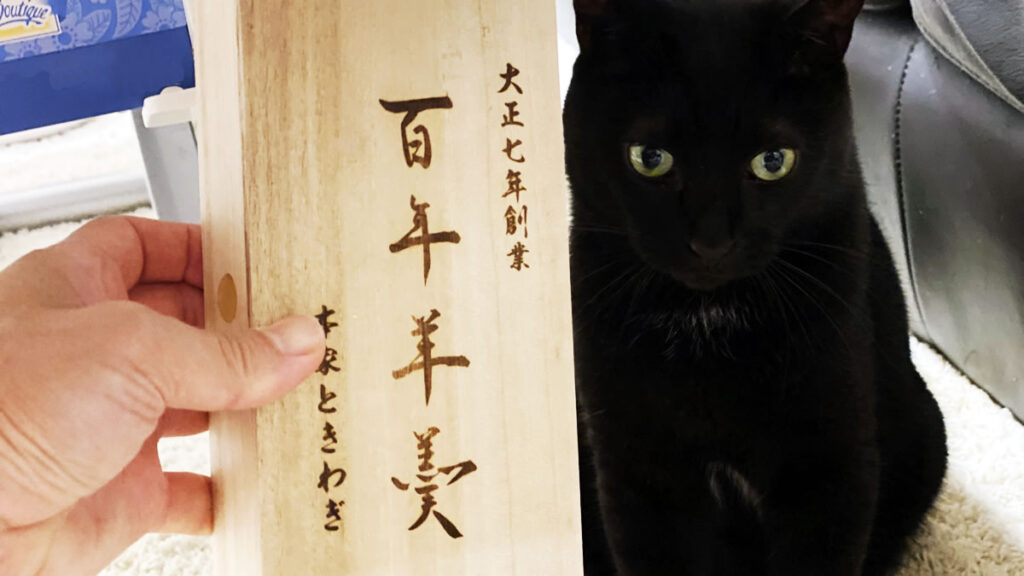 大正七年創業
百年羊羹
本家ときわぎ
outique